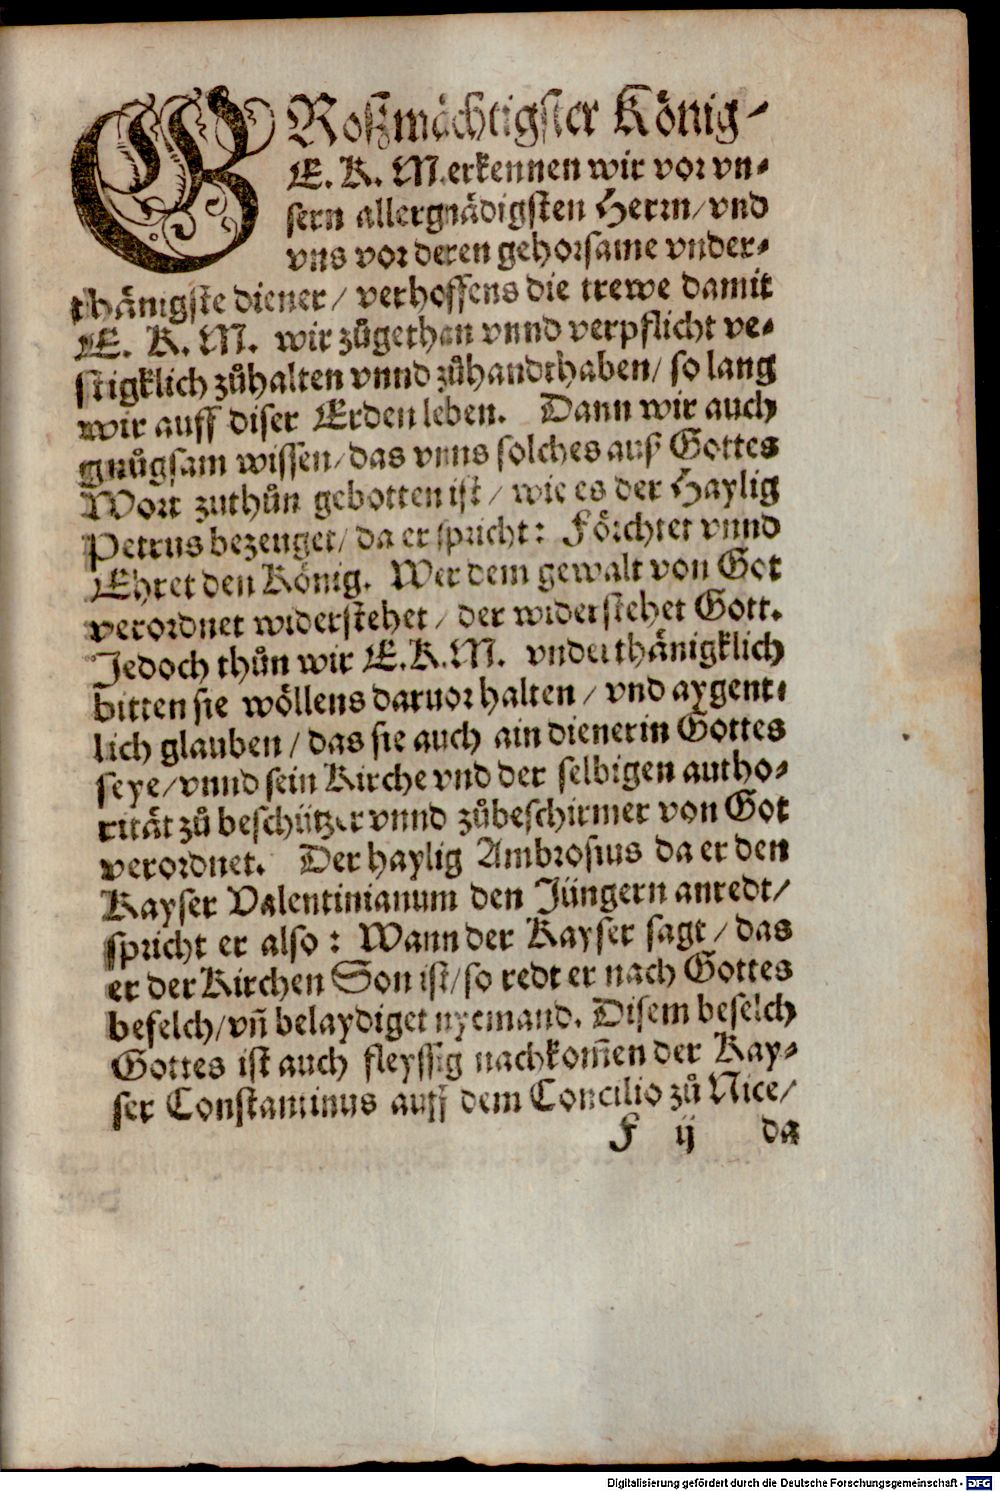 GRoßmächtigster König/
E. K. M. erkennen wir vor vn⸗
sern allergnädigsten Herrn/ vnd
vns vor deren gehorsame vnder⸗
thänigste diener/ verhoffens die trewe damit
E. K. M. wir zůgethan vnnd verpflicht ve⸗
stigklich zůhalten vnnd zůhandthaben/ so lang
wir auff diser Erden leben. Dann wir auch
gnůgsam wissen/ das vnns solches auß Gottes
Wort zuthůn gebotten ist/ wie es der Haylig
Petrus bezeuget/ da er spricht: Förchtet vnnd
Ehret den König. Wer dem gewalt von Got
verordnet widerstehet/ der widerstehet Gott.
Jedoch thůn wir E. K. M. vnderthänigklich
bitten sie wöllens daruor halten/ vnd aygent⸗
lich glauben/ das sie auch ain dienerin Gottes
seye/ vnnd sein Kirche vnd der selbigen autho⸗
rität zů beschützer vnnd zůbeschirmer von Got
verordnet. Der haylig Ambrosius da er den
Kayser Valentinianum den Jüngern anredt/
spricht er also: Wann der Kayser sagt/ das
er der Kirchen Son ist/ so redt er nach Gottes
befelch/ vñ belaydiget nyemand. Disem befelch
Gottes ist auch fleyssig nachkom̃en der Kay⸗
ser Constantinus auff dem Concilio zů Nice/
F ij da
Digitalisierung gefördert durch die Deutsche Forschungsgemeinschaft - DFG